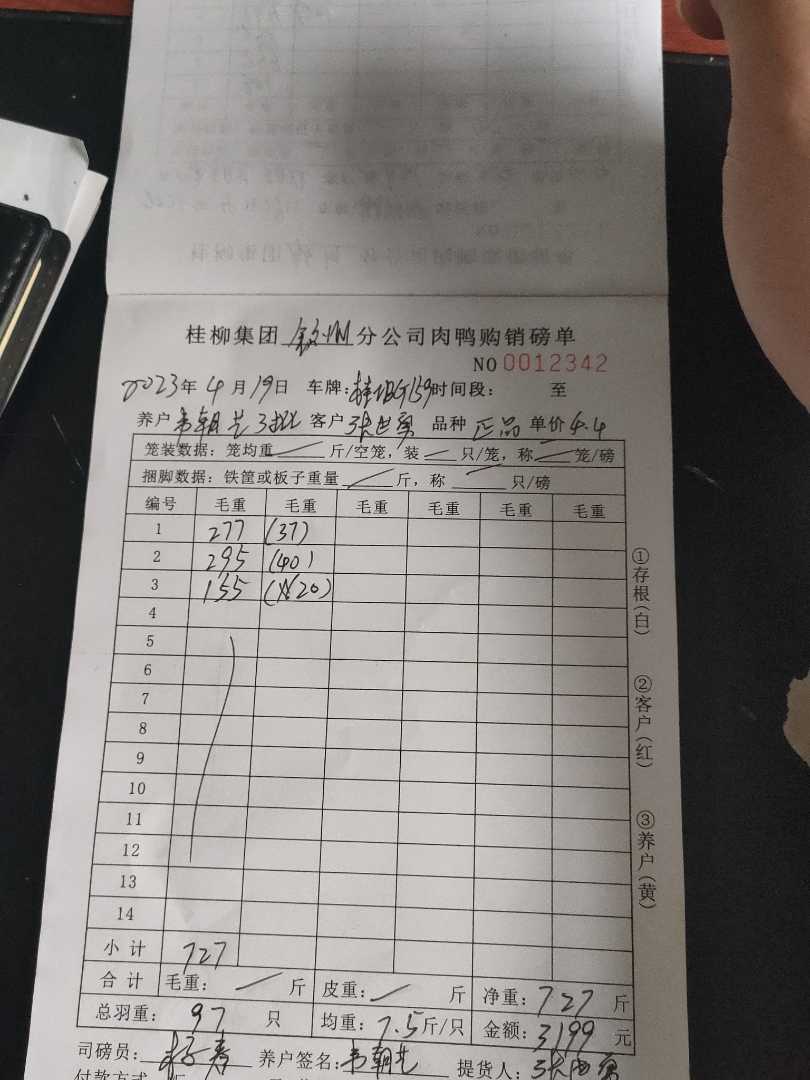 桂柳集团 钦州 分公司肉鸭购销磅单
NO 0012342
2023年 4 月 19日 车牌: 时间段: 至
养户 韦朝 客户 张世勇 品种 正品 单价 4.4
笼装数据: 笼均重 斤/空笼, 装 只/笼, 称 笼/磅
捆脚数据: 铁筐或板子重量 斤, 称 只/磅
编号 毛重 毛重 毛重 毛重 毛重 毛重
1 277 (37)
2 295 (40)
3 155 (20)
4
5
6
7
8
9
10
11
12
13
14
小计 727
合计 毛重: 斤 皮重: 斤 净重: 727 斤
总羽重: 97 只 均重: 7.5 斤/只 金额: 3199 元
司磅员: 养户签名: 韦朝 提货人: 张世勇
付款方式
①存根(白)
②客户(红)
③养户(黄)